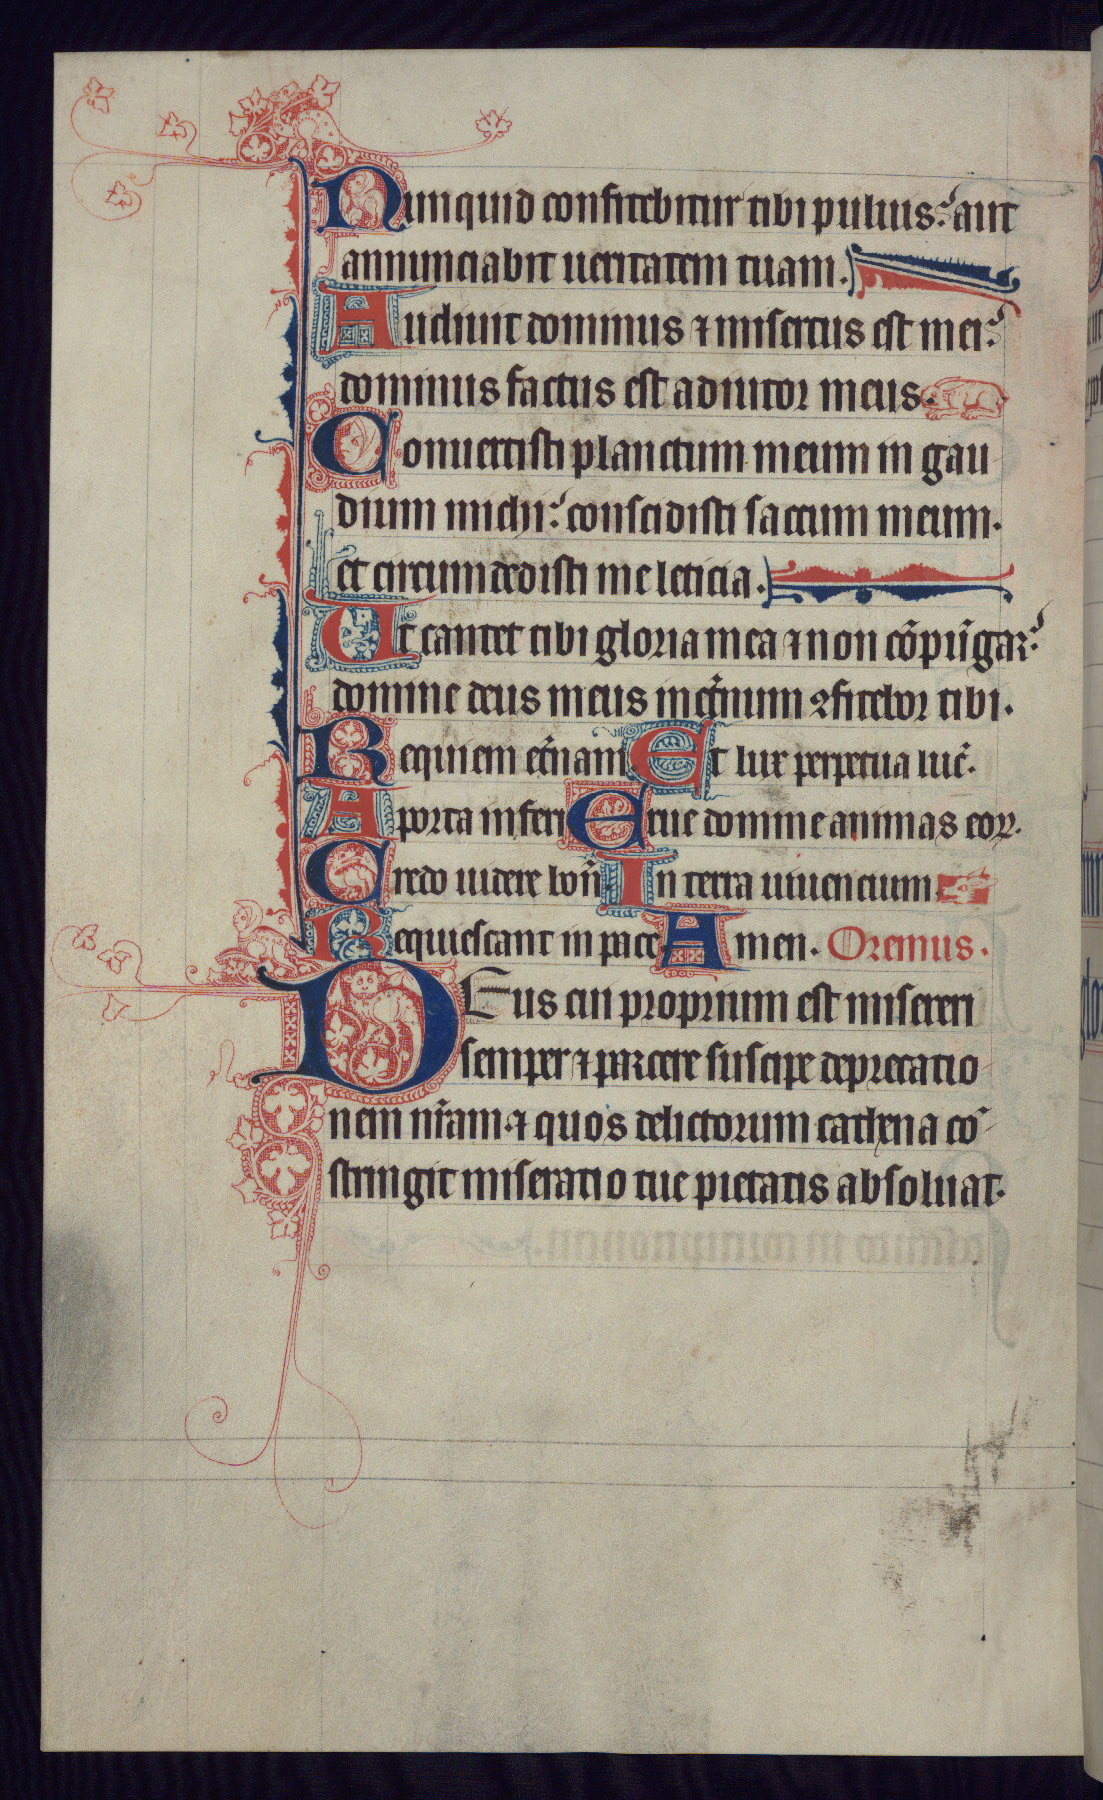 Nunquid confitebitur tibi puluis: aut
annunciabit ueritatem tuam.
Audiuit dominus ⁊ misertus est mei:
dominus factus est adiutor meus.
Conuertisti planctum meum in gau
dium michi: conscidisti saccum meum.
et circumdedisti me leticia.
Ut cantet tibi gloria mea ⁊ non cōpūgar:
domine deus meus in et̄num ꝯfitebor tibi.
Requiem et̄nam Et lux perpetua luc̄.
A porta inferi Erue domine animas eoꝝ.
Credo uidere bon̄ In terra uiuencium
Requiescant in pace Amen. Oremus.
DEus cui proprium est misereri
semper ⁊ parcere suscipe deprecatio
nem nr̄am ⁊ quos delictorum cathena cō
stringit miseratio tue pietatis absoluat.